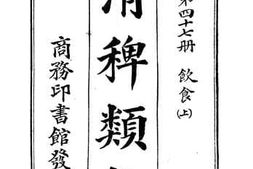 第四十七册 飲食(上)
清稗類
商務印書館發